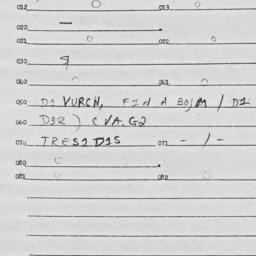 012 013
020 —
021 022
030 9
040 041
050 D1 VURCH, FIN A BOJM / D1
060 D3R ) C VA.G2
070 TRES1 D1S 071 - / -
080
081 082